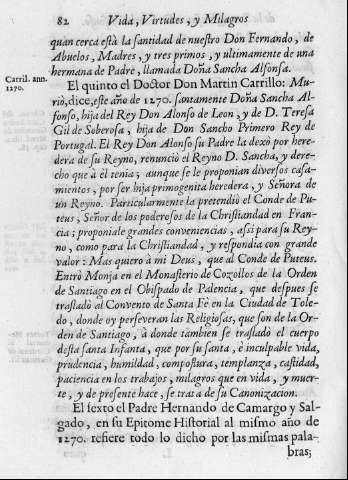 82 Vida, Virtudes, y Milagros
quan cerca està la santidad de nuestro Don Fernando, de
Abuelos, Madres, y tres primos, y ultimamente de una
hermana de Padre, llamada Doña Sancha Alfonsa.
Carril. ann.
1270.
El quinto el Doctor Don Martin Carrillo: Mu-
riò, dice, este año de 1270. santamente Doña Sancha Al-
fonso, hija del Rey Don Alonso de Leon, y de D. Teresa
Gil de Soberosa, hija de Don Sancho Primero Rey de
Portugal. El Rey Don Alonso su Padre la dexò por here-
dera de su Reyno, renunciò el Reyno D. Sancha, y dere-
cho que à èl tenia; aunque se le proponian diversos casa-
mientos, por ser hija primogenita heredera, y Señora de
un Reyno. Particularmente la pretendiò el Conde de Pu-
teus, Señor de los poderosos de la Christiandad en Fran-
cia; proponiale grandes conveniencias, assi para su Rey-
no, como para la Christiandad, y respondia con grande
valor: Mas quiero à mi Deus, que al Conde de Puteus.
Entrò Monja en el Monasterio de Cozollos de la Orden
de Santiago en el Obispado de Palencia, que despues se
trasladò al Convento de Santa Fè en la Ciudad de Tole-
do, donde oy perseveran las Religiosas, que son de la Or-
den de Santiago, à donde tambien se trasladò el cuerpo
desta santa Infanta, que por su santa, è inculpable vida,
prudencia, humildad, compostura, templanza, castidad,
paciencia en los trabajos, milagros que en vida, y muer-
te, y de presente hace, se trata de su Canonizacion.
El sexto el Padre Hernando de Camargo y Sal-
gado, en su Epitome Historial al mismo año de
1270. refiere todo lo dicho por las mismas pala-
bras;